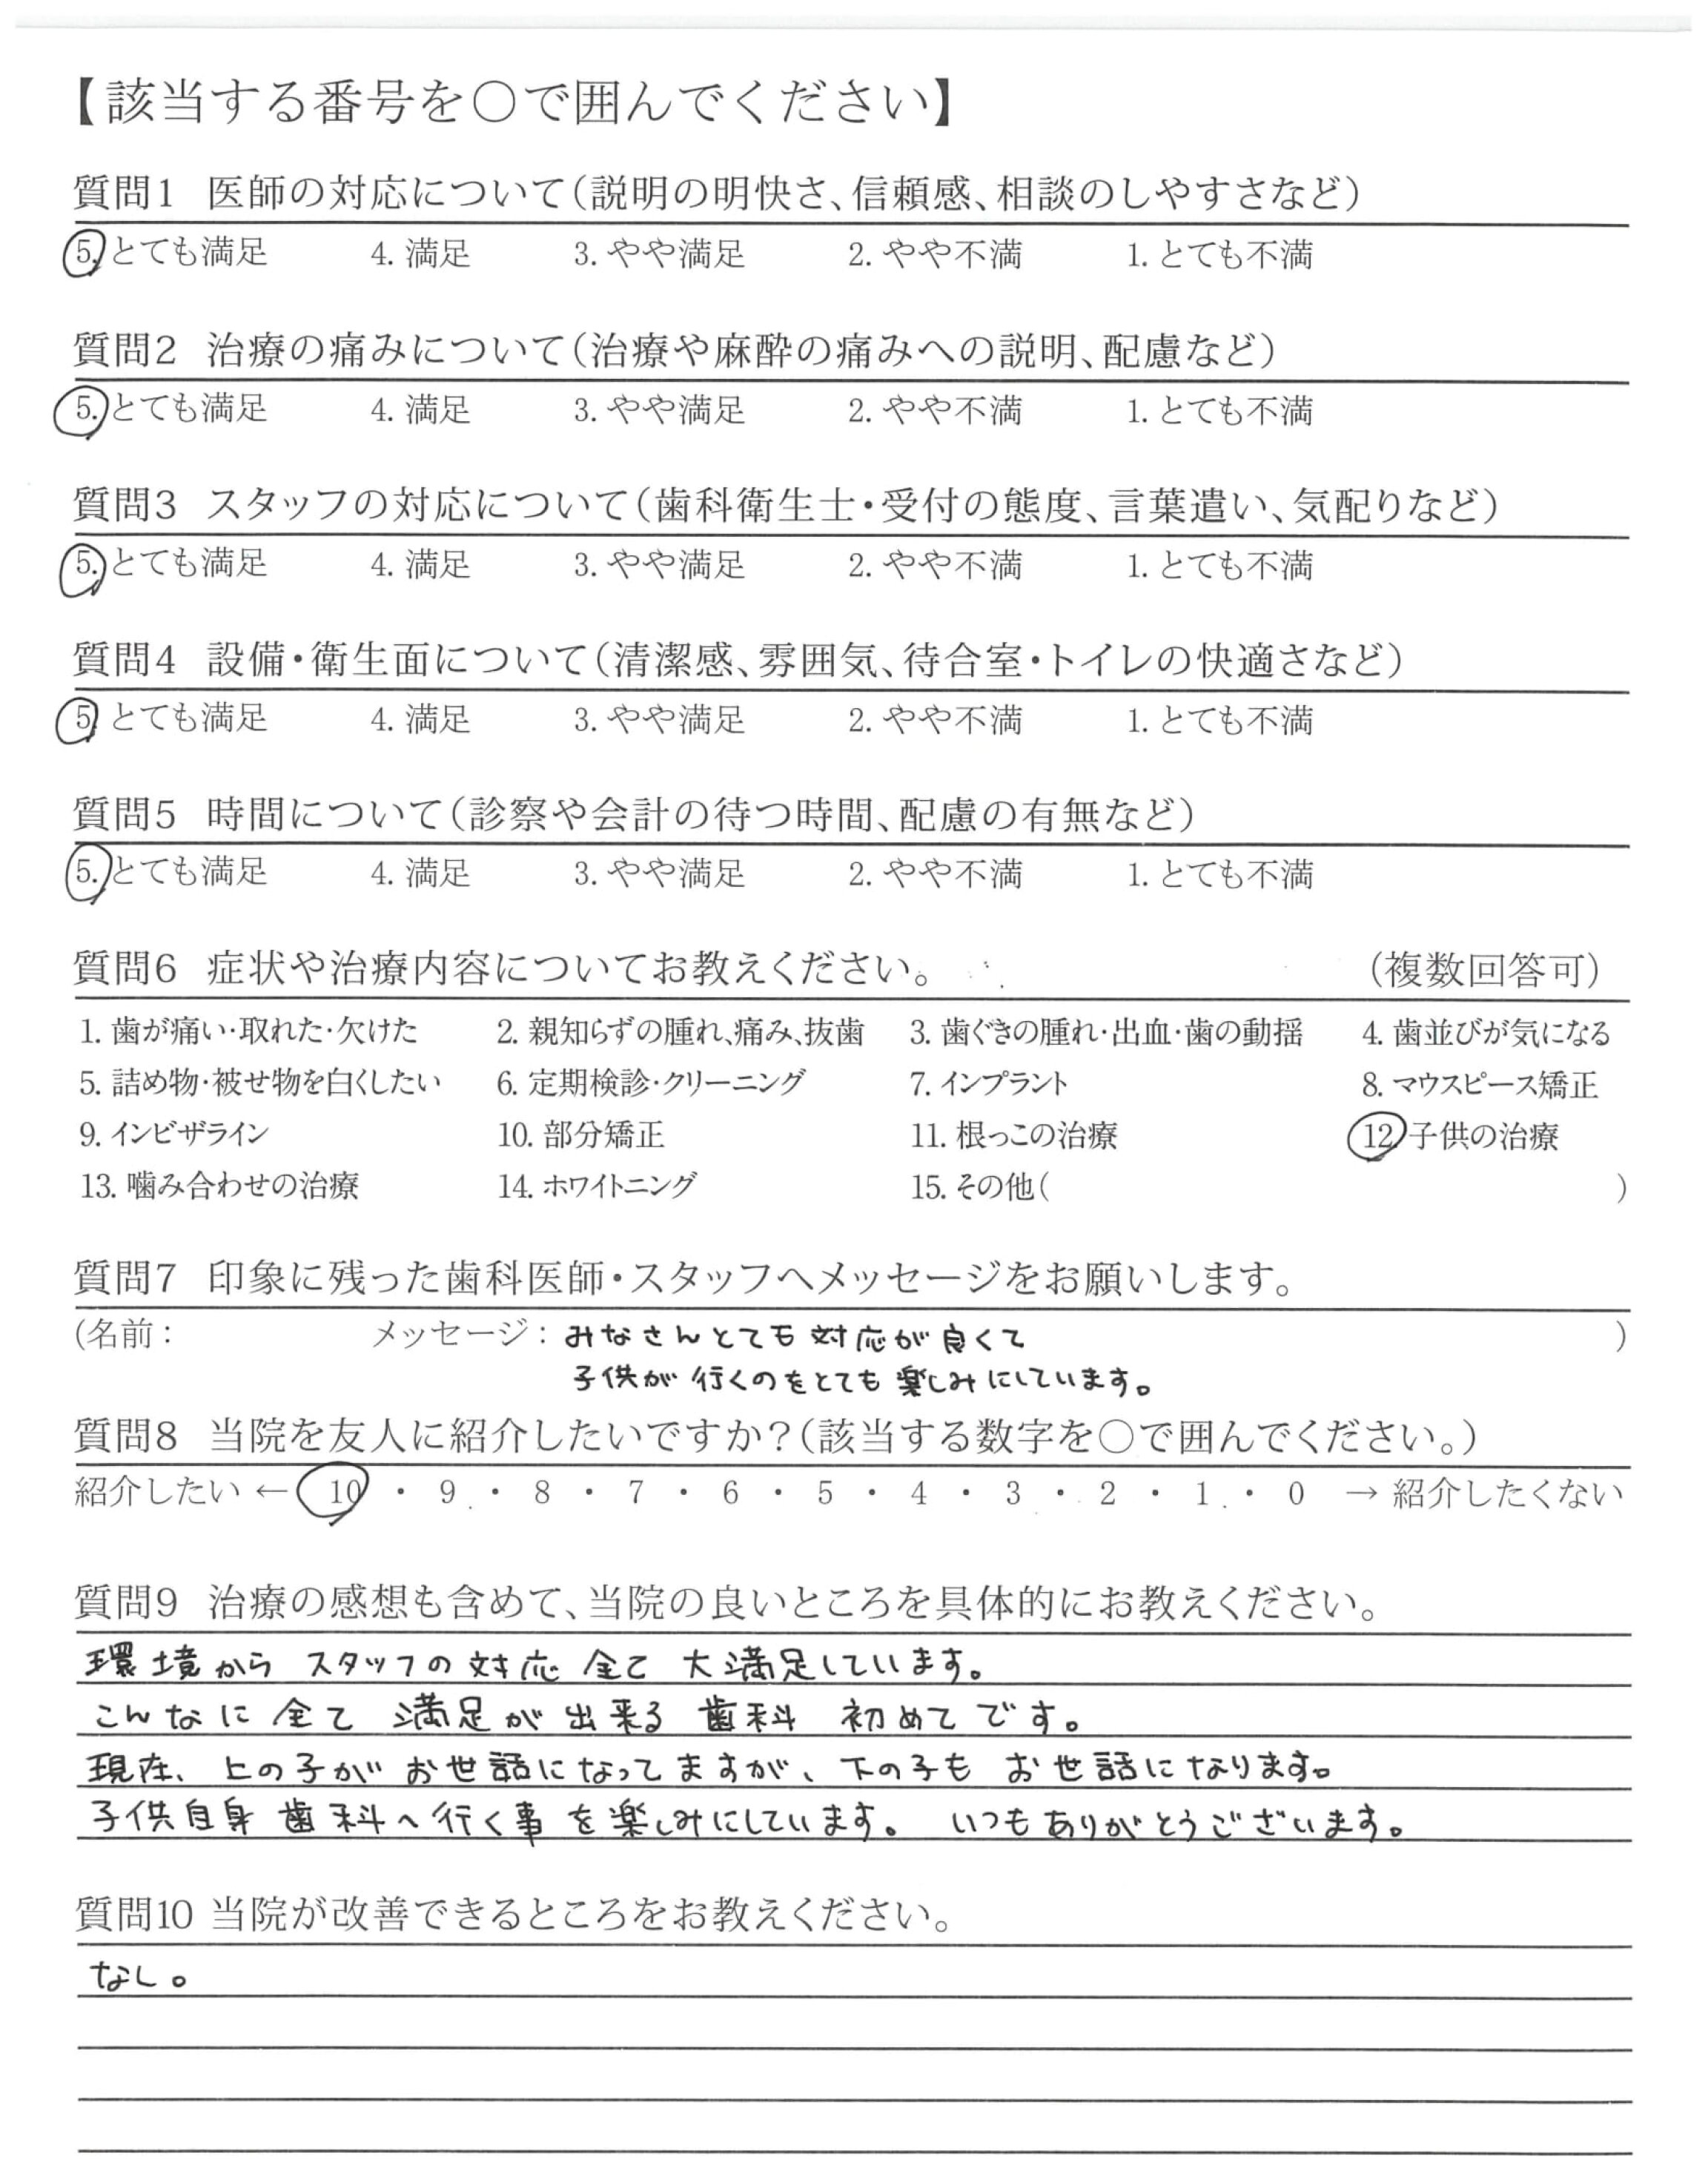 【該当する番号を〇で囲んでください】
質問1 医師の対応について(説明の明快さ、信頼感、相談のしやすさなど)
5. とても満足 4. 満足 3. やや満足 2. やや不満 1. とても不満
質問2 治療の痛みについて(治療や麻酔の痛みへの説明、配慮など)
5. とても満足 4. 満足 3. やや満足 2. やや不満 1. とても不満
質問3 スタッフの対応について(歯科衛生士・受付の態度、言葉遣い、気配りなど)
5. とても満足 4. 満足 3. やや満足 2. やや不満 1. とても不満
質問4 設備・衛生面について(清潔感、雰囲気、待合室・トイレの快適さなど)
5. とても満足 4. 満足 3. やや満足 2. やや不満 1. とても不満
質問5 時間について(診察や会計の待つ時間、配慮の有無など)
5. とても満足 4. 満足 3. やや満足 2. やや不満 1. とても不満
質問6 症状や治療内容についてお教えください。 (複数回答可)
1. 歯が痛い・取れた・欠けた 2. 親知らずの腫れ、痛み、抜歯 3. 歯ぐきの腫れ・出血・歯の動揺 4. 歯並びが気になる
5. 詰め物・被せ物を白くしたい 6. 定期検診・クリーニング 7. インプラント 8. マウスピース矯正
9. インビザライン 10. 部分矯正 11. 根っこの治療 12. 子供の治療
13. 噛み合わせの治療 14. ホワイトニング 15. その他( )
質問7 印象に残った歯科医師・スタッフへメッセージをお願いします。
(名前: メッセージ: みなさんとても対応が良くて )
子供が行くのをとても楽しみにしています。
質問8 当院を友人に紹介したいですか?(該当する数字を〇で囲んでください。)
紹介したい ← 10 ・ 9 ・ 8 ・ 7 ・ 6 ・ 5 ・ 4 ・ 3 ・ 2 ・ 1 ・ 0 → 紹介したくない
質問9 治療の感想も含めて、当院の良いところを具体的にお教えください。
環境から スタッフの対応 全て 大満足しています。
こんなに全て 満足が出来る 歯科 初めてです。
現在、上の子が お世話になってますが、下の子も お世話になります。
子供自身 歯科へ行く事を楽しみにしています。 いつもありがとうございます。
質問10 当院が改善できるところをお教えください。
なし。